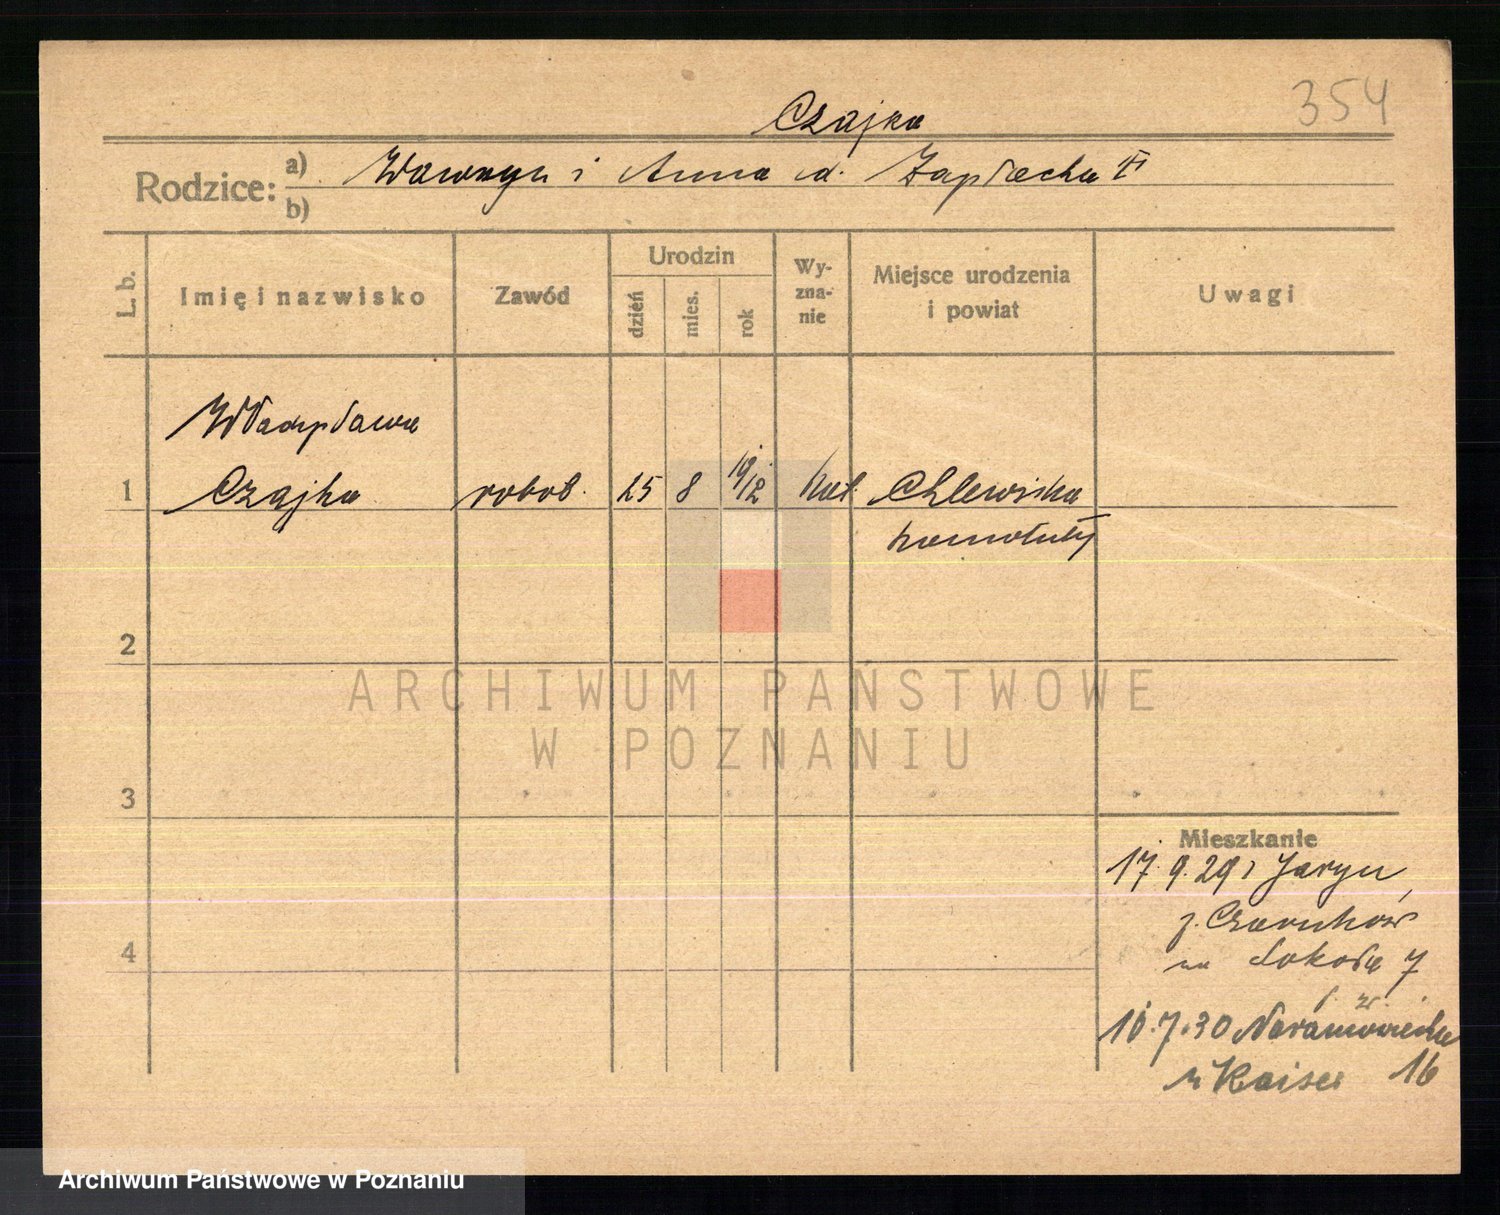 354
Czajka
Rodzice: a) Wawrzyn i Anna d.
b)
L. b.
Imię i nazwisko
Zawód
Urodzin
dzień
mies.
rok
Wy-
zna-
nie
Miejsce urodzenia
i powiat
Uwagi
Władysława
1 Czajka robot. 25 8 19/12 kat. Chlewiska
Szamotuły
2
ARCHIWUM PAŃSTWOWE
W POZNANIU
3
Mieszkanie
17.9.29 z
p. Czarnków
na 7
10.7.30 Naramowicka
Kaiser 16
4
Archiwum Państwowe w Poznaniu